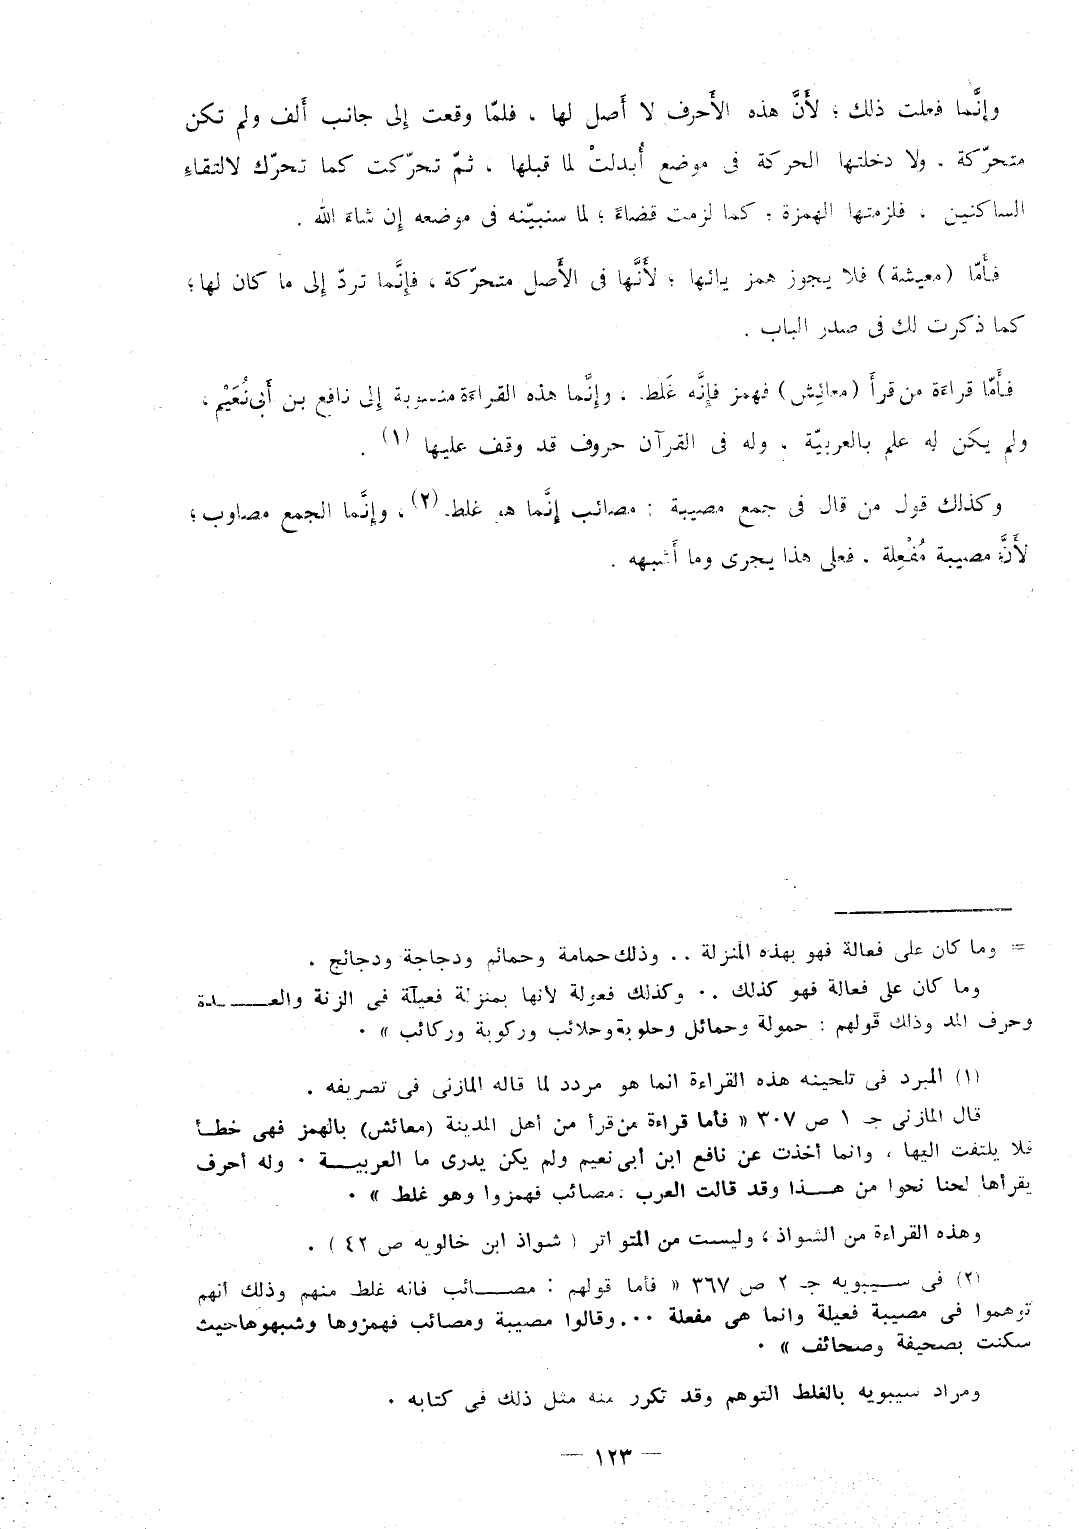 وإنَّما فعلت ذلك ؛ لأَنَّ هذه الأَحرف لا أَصل لها ، فلمّا وقعت إلى جانب أَلف ولم تكن
متحرّكة ، ولا دخلتها الحركة فى موضع أُبدلتْ لما قبلها ، ثمّ تحرّكت كما تحرّك لالتقاءِ
الساكنين ، فلزمتها الهمزة ؛ كما لزمت قضاءً ؛ لما سنبيّنه فى موضعه إن شاءَ الله .
فأَمّا (معيشة) فلا يجوز همز يائها ؛ لأَنَّها فى الأَصل متحرّكة ، فإنَّما تردّ إلى ما كان لها ؛
كما ذكرت لك فى صدر الباب .
فأَمّا قراءَة من قرأَ (معائِش) فهمز فإنَّه غَلط ، وإنَّما هذه القراءَة منسوبة إلى نافع بن أَبى نُعَيْم ،
ولم يكن له علم بالعربيّة ، وله فى القرآن حروف قد وقف عليها (١) .
وكذلك قول من قال فى جمع مصيبة : مصائب إنَّما هو غلط (٢) ، وإنَّما الجمع مصاوب ؛
لأَنَّ مصيبة مُفْعِلة . فعلى هذا يجرى وما أَشبهه .
= وما كان على فعالة فهو بهذه المنزلة .. وذلك حمامة وحمائم ودجاجة ودجائج .
وما كان على فعالة فهو كذلك .. وكذلك فعولة لأنها بمنزلة فعيلة فى الزنة والعـــدة
وحرف المد وذلك قولهم : حمولة وحمائل وحلوبة وحلائب وركوبة وركائب » .
(١) المبرد فى تلحينه هذه القراءة انما هو مردد لما قاله المازنى فى تصريفه .
قال المازنى جـ ١ ص ٣٠٧ « فأما قراءة من قرأ من أهل المدينة (معائش) بالهمز فهى خطـأ
فلا يلتفت اليها ، وانما أخذت عن نافع ابن أبى نعيم ولم يكن يدرى ما العربيـــة . وله أحرف
يقرأها لحنا نحوا من هـــذا وقد قالت العرب : مصائب فهمزوا وهو غلط » .
وهذه القراءة من الشواذ ، وليست من المتواتر ( شواذ ابن خالويه ص ٤٢ ) .
(٢) فى ســـيبويه جـ ٢ ص ٣٦٧ « فأما قولهم : مصـــائب فانه غلط منهم وذلك أنهم
توهموا فى مصيبة فعيلة وانما هى مفعلة ... وقالوا مصيبة ومصائب فهمزوها وشبهوها حيث
سكنت بصحيفة وصحائف » .
ومراد سيبويه بالغلط التوهم وقد تكرر منه مثل ذلك فى كتابه .
— ١٢٣ —